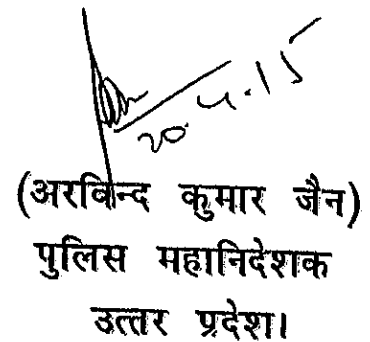 20.4.15
(अरविन्द कुमार जैन)
पुलिस महानिदेशक
उत्तर प्रदेश।